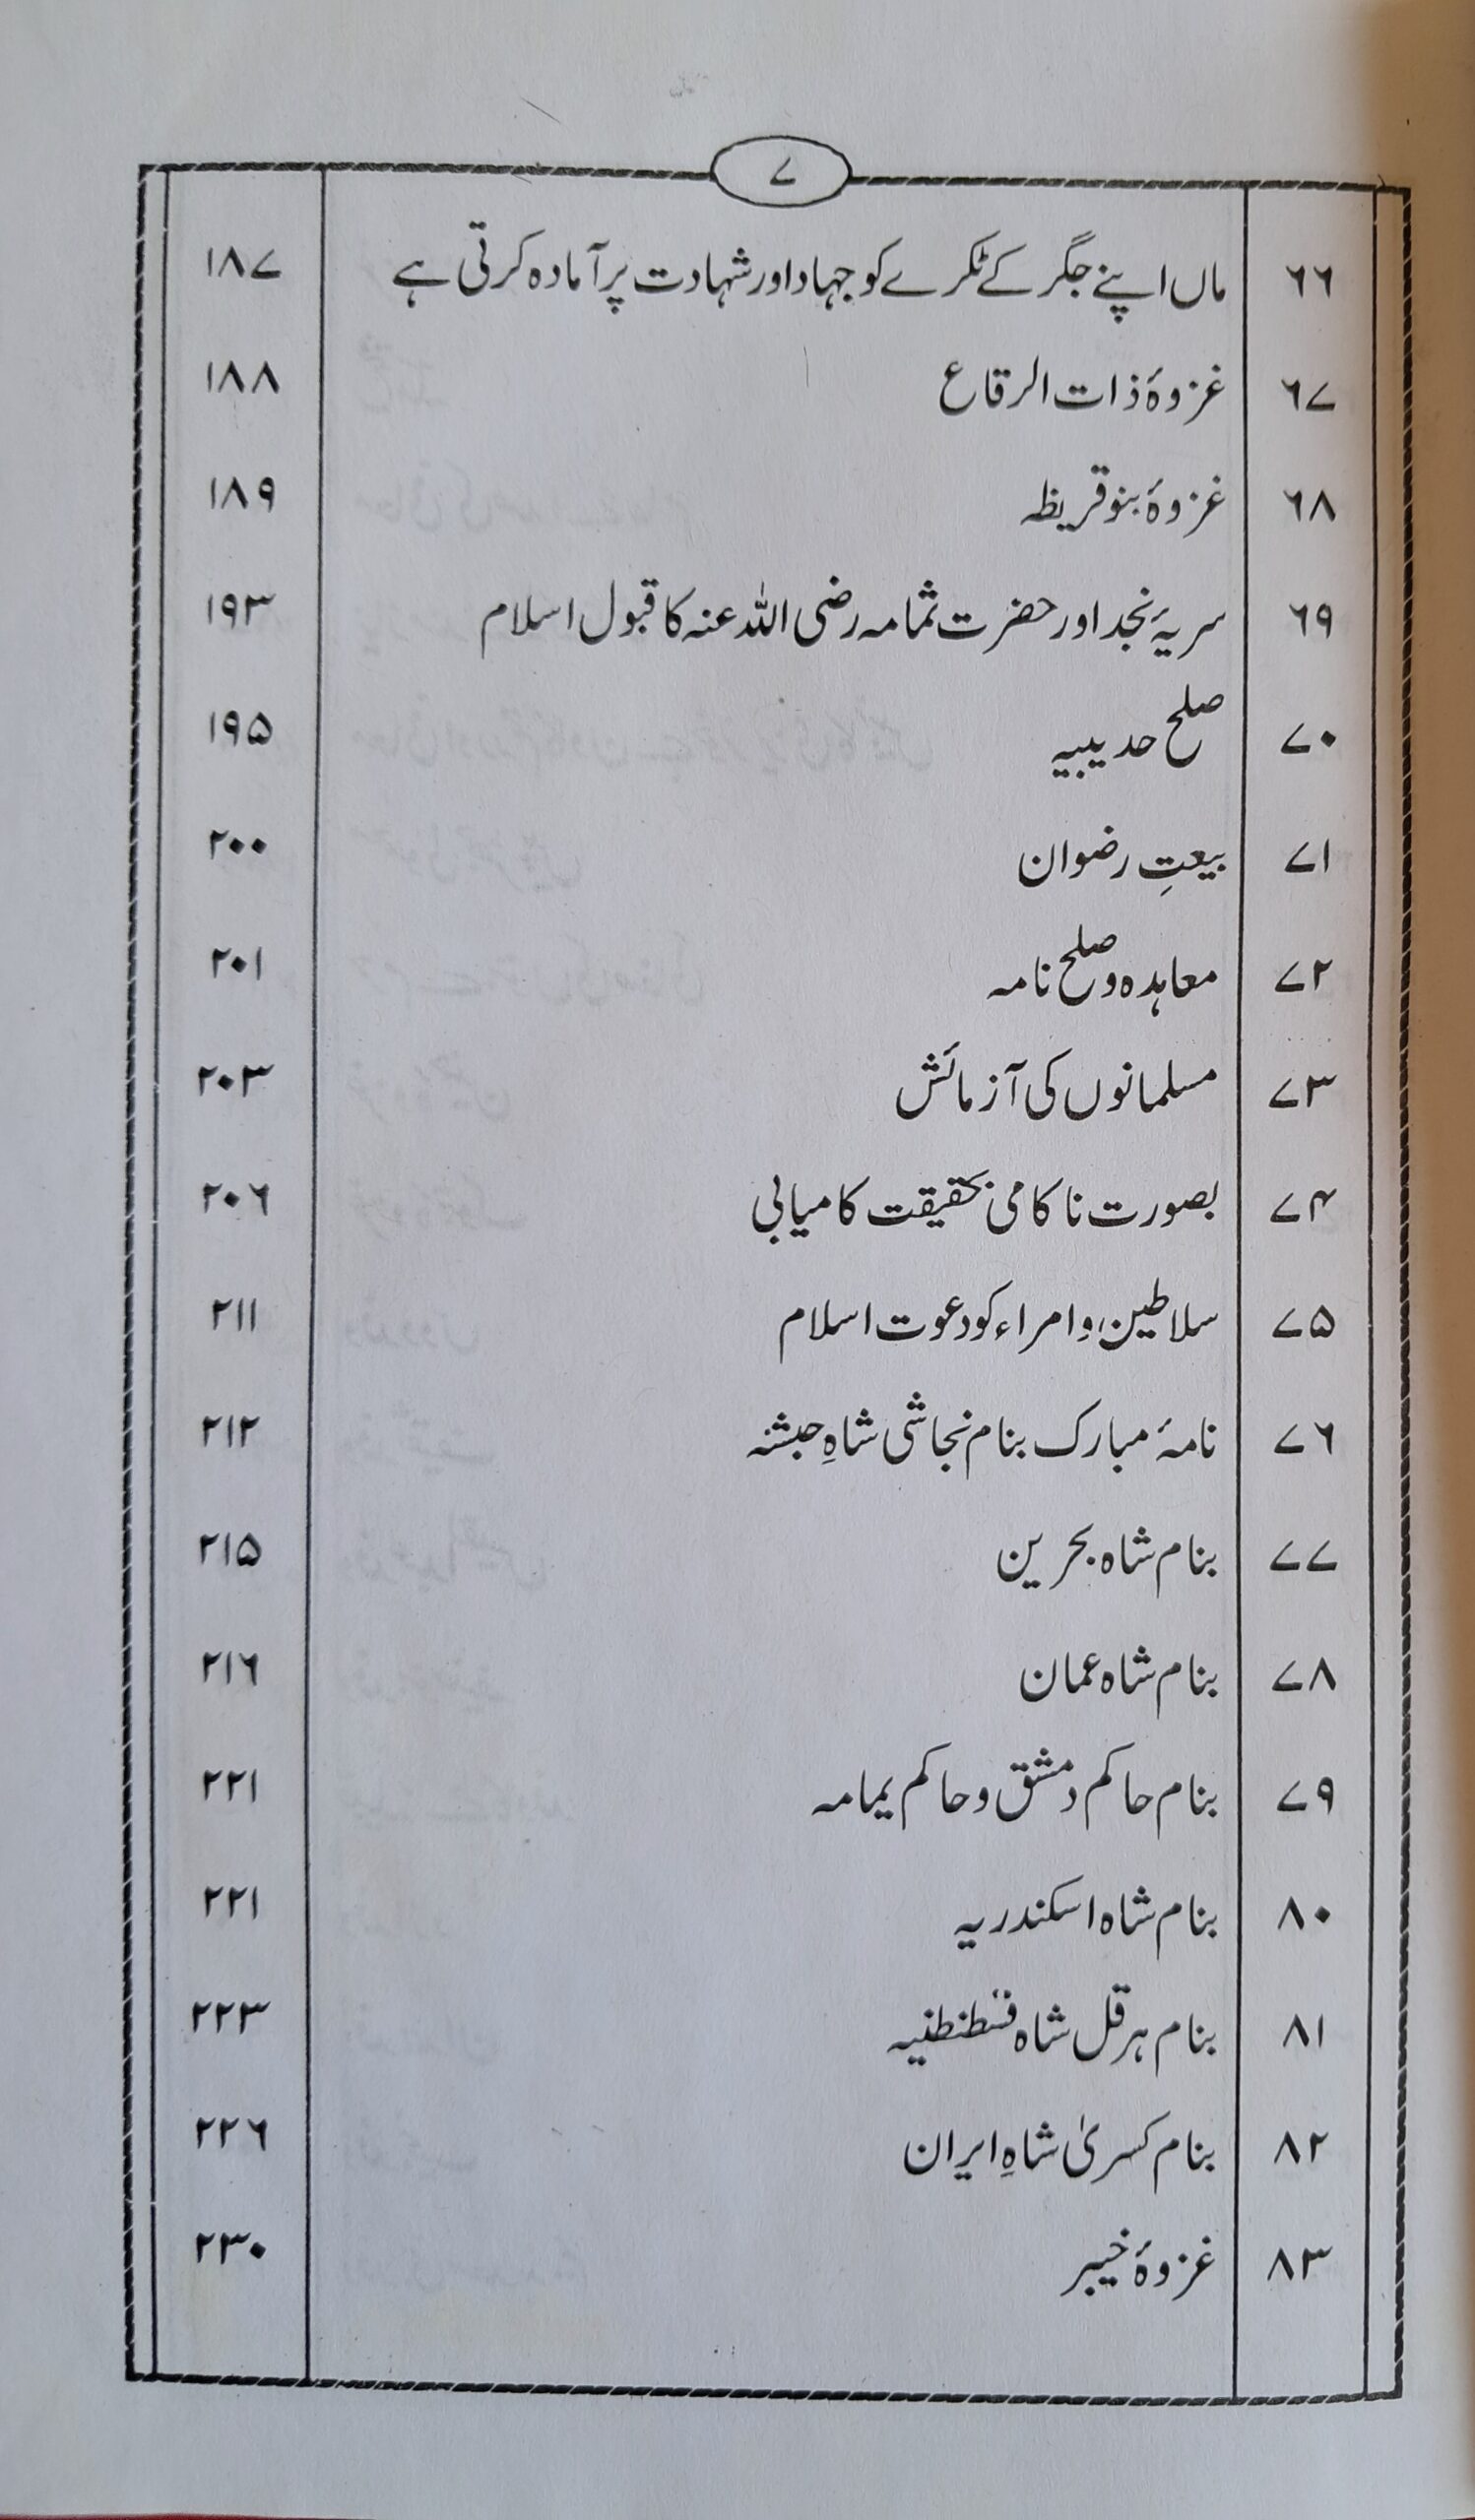 ۷
۶۶ ماں اپنے جگر کے ٹکرے کو جہاد اور شہادت پر آمادہ کرتی ہے ۱۸۷
۶۷ غزوۂ ذات الرقاع ۱۸۸
۶۸ غزوۂ بنو قریظہ ۱۸۹
۶۹ سریۂ نجد اور حضرت ثمامہ رضی اللہ عنہ کا قبول اسلام ۱۹۳
۷۰ صلح حدیبیہ ۱۹۵
۷۱ بیعتِ رضوان ۲۰۰
۷۲ معاہدہ و صلح نامہ ۲۰۱
۷۳ مسلمانوں کی آزمائش ۲۰۳
۷۴ بصورت ناکامی بحقیقت کامیابی ۲۰۶
۷۵ سلاطین، و امراء کو دعوت اسلام ۲۱۱
۷۶ نامۂ مبارک بنام نجاشی شاہِ حبشہ ۲۱۲
۷۷ بنام شاہ بحرین ۲۱۵
۷۸ بنام شاہ عمان ۲۱۶
۷۹ بنام حاکم دمشق و حاکم یمامہ ۲۲۱
۸۰ بنام شاہ اسکندریہ ۲۲۱
۸۱ بنام ہرقل شاہ قسطنطنیہ ۲۲۳
۸۲ بنام کسریٰ شاہِ ایران ۲۲۶
۸۳ غزوۂ خیبر ۲۳۰